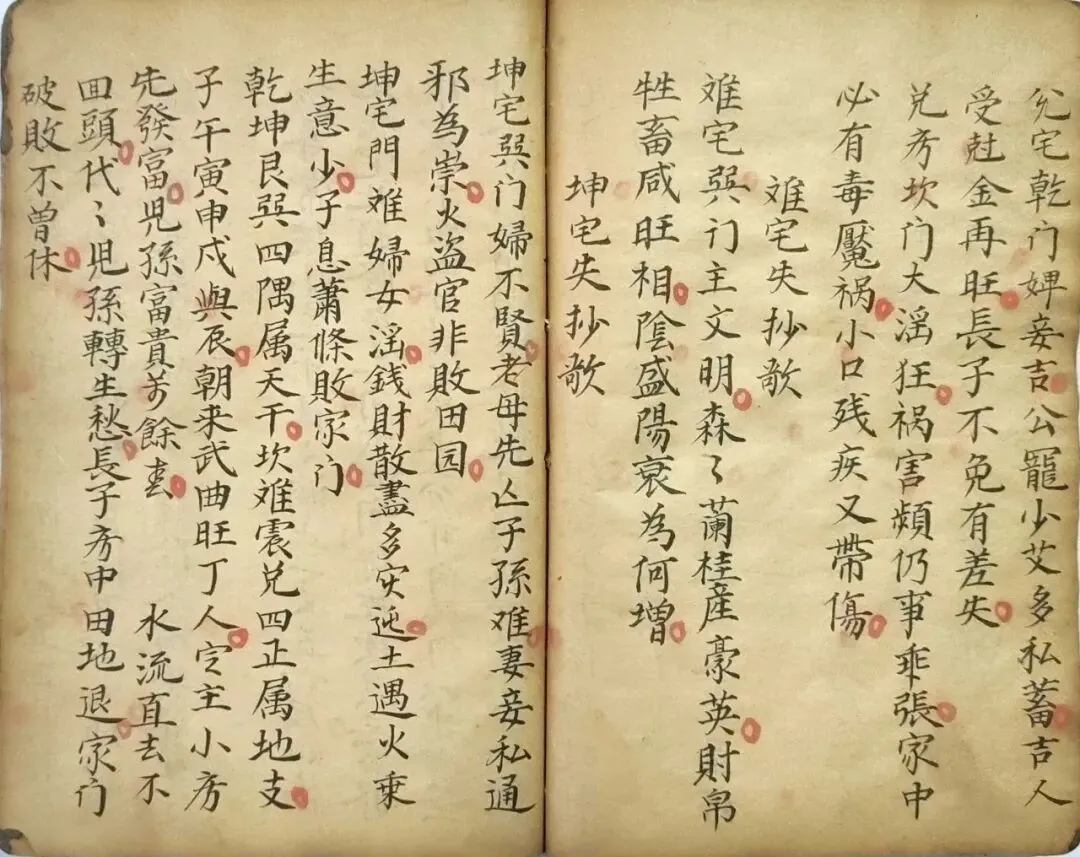 兊宅乾门婢妾吉公寵少艾多私蓄吉人
受尅金再旺長子不免有差失
兑方坎门大滛狂祸害頻仍事乖張家中
必有毒魘祸小口残疾又帶傷
难宅失抄歌
难宅巽门主文明森〻蘭桂産豪英財帛
牲畜咸旺相陰盛陽衰為何增
坤宅失抄歌
坤宅巽门婦不賢老母先亾子孫难妻妾私通
邪為崇火盜官非敗田园
坤宅門难婦女滛錢財散盡多灾迍土遇火乘
生意少子息蕭條敗家门
乾坤艮巽四隅属天干坎难震兑四正属地支
子午寅申戍與辰朝来武曲旺丁人定主小房
先發富児孫富貴芳餘春 水流直去不
回頭代〻児孫轉生愁長子房中田地退家门
破敗不曾休